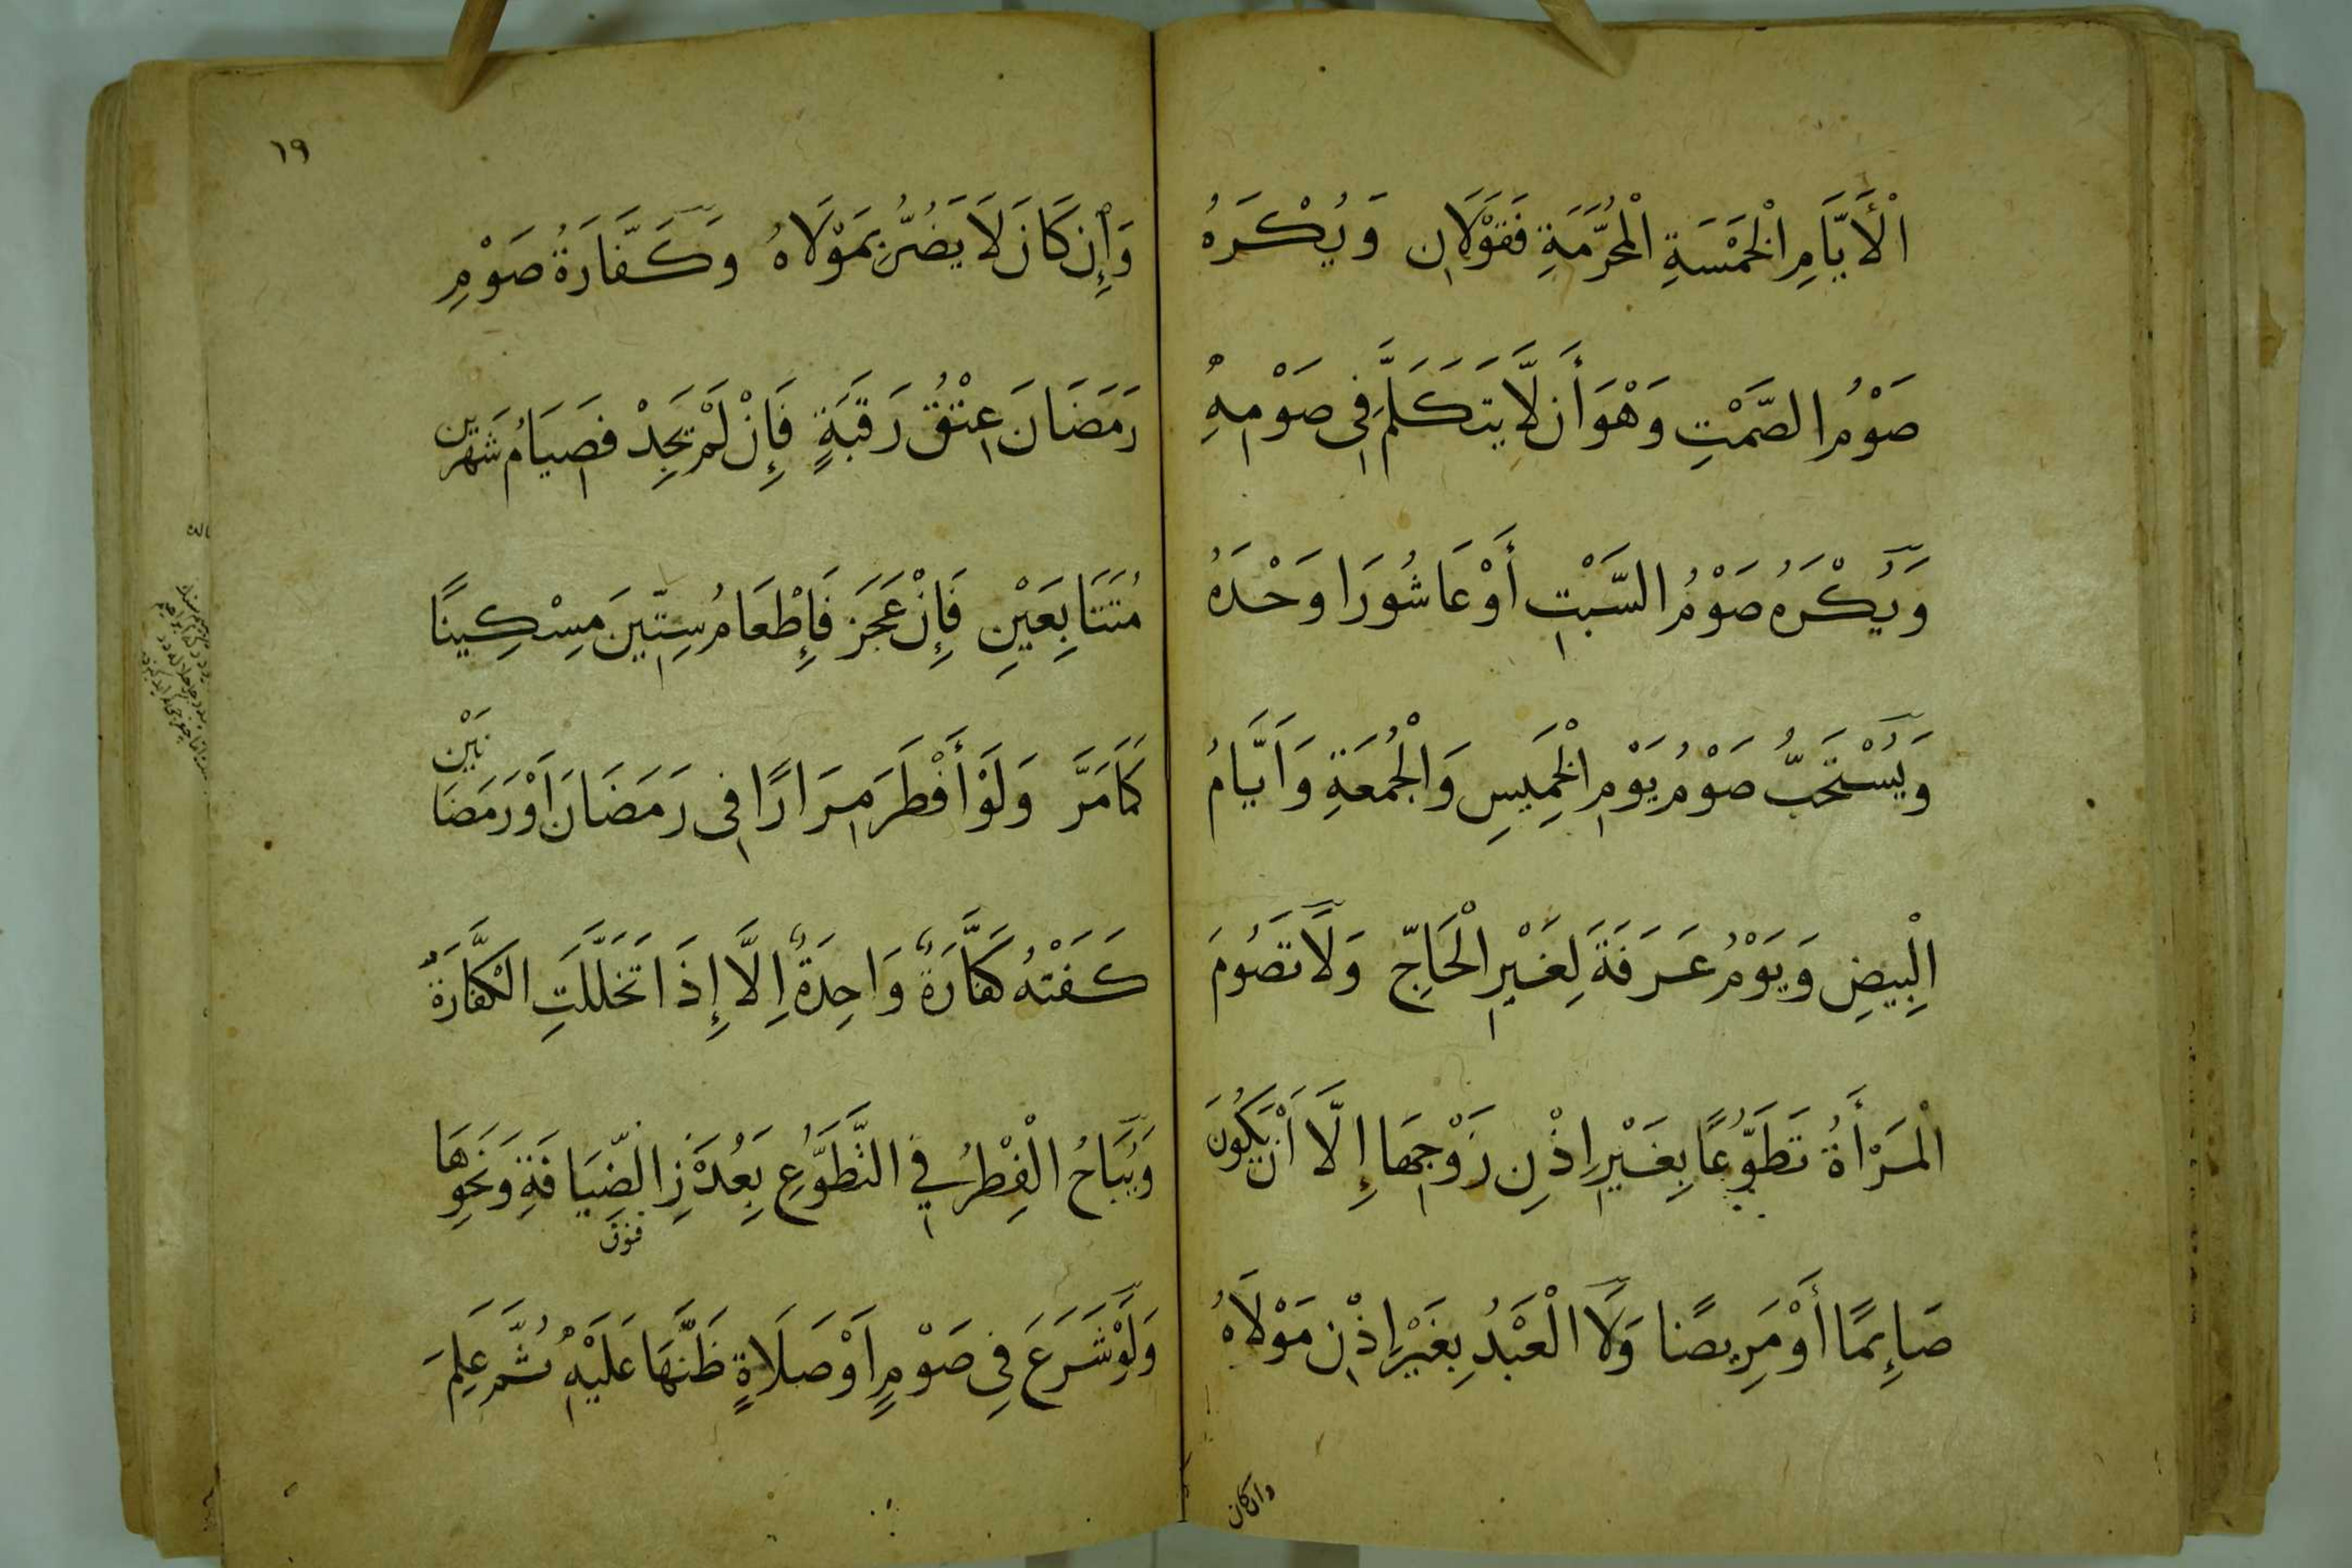 اْلأَيَّامِ الْخَمْسَةِ الْمُحَرَّمَةِ فَقَوْلَانِ وَيُكْرَهُ
صَوْمُ الصَّمْتِ وَهْوَ أَن لَّا يَتَكَلَّمَ فِى صَوْمِهِ
وَيُكْرَهُ صَوْمُ السَّبْتِ أَوْ عَاشُورَا وَحْدَهُ
وَيُسْتَحَبُّ صَوْمُ يَوْمِ الْخَمِيسِ وَالْجُمُعَةِ وَاَيَّامُ
الْبِيضِ وَيَوْمُ عَرَفَةَ لِغَيْرِ الْحَاجِّ وَلَا تَصُومَ
الْمَرْأَةُ تَطَوُّعًا بِغَيْرِ اِذْنِ زَوْجِهَا إِلَّا اَنْ يَكُونَ
صَاإِمًا أَوْ مَرِيضًا وَلَا الْعَبْدُ بِغَيْرِ اِذْنِ مَوْلَاهُ
وان كان
١٩
وَإِن كَانَ لَا يَضُرُّ بِمَوْلَاهُ وَكَفَّارَةُ صَوْمِ
رَمَضَانَ عِتْقُ رَقَبَةٍ فَإِنْ لَمْ يَجِدْ فَصِيَامُ شَهْرَيْنِ
مُتَتَابِعَيْنِ فَإِنْ عَجَزَ فَإِطْعَامُ سِتِّينَ مِسْكِينًا
كَمَا مَرَّ وَلَوْ أَفْطَرَ مِرَارًا فِى رَمَضَانَ اَوْ رَمَضَانَيْنِ
كَفَتْهُ كَفَّارَةٌ وَاحِدَةٌ اِلَّا إِذَا تَخَلَّلَتِ الْكَفَّارَةُ
وَيُبَاحُ الْفِطْرُ فِي التَّطَوُّعِ بِعُذْرِ الضِّيَافَةِ وَنَحْوِهَا
وَلَوْ شَرَعَ فِى صَوْمٍ اَوْ صَلَاةٍ ظَنَّهَا عَلَيْهِ ثُمَّ عَلِمَ